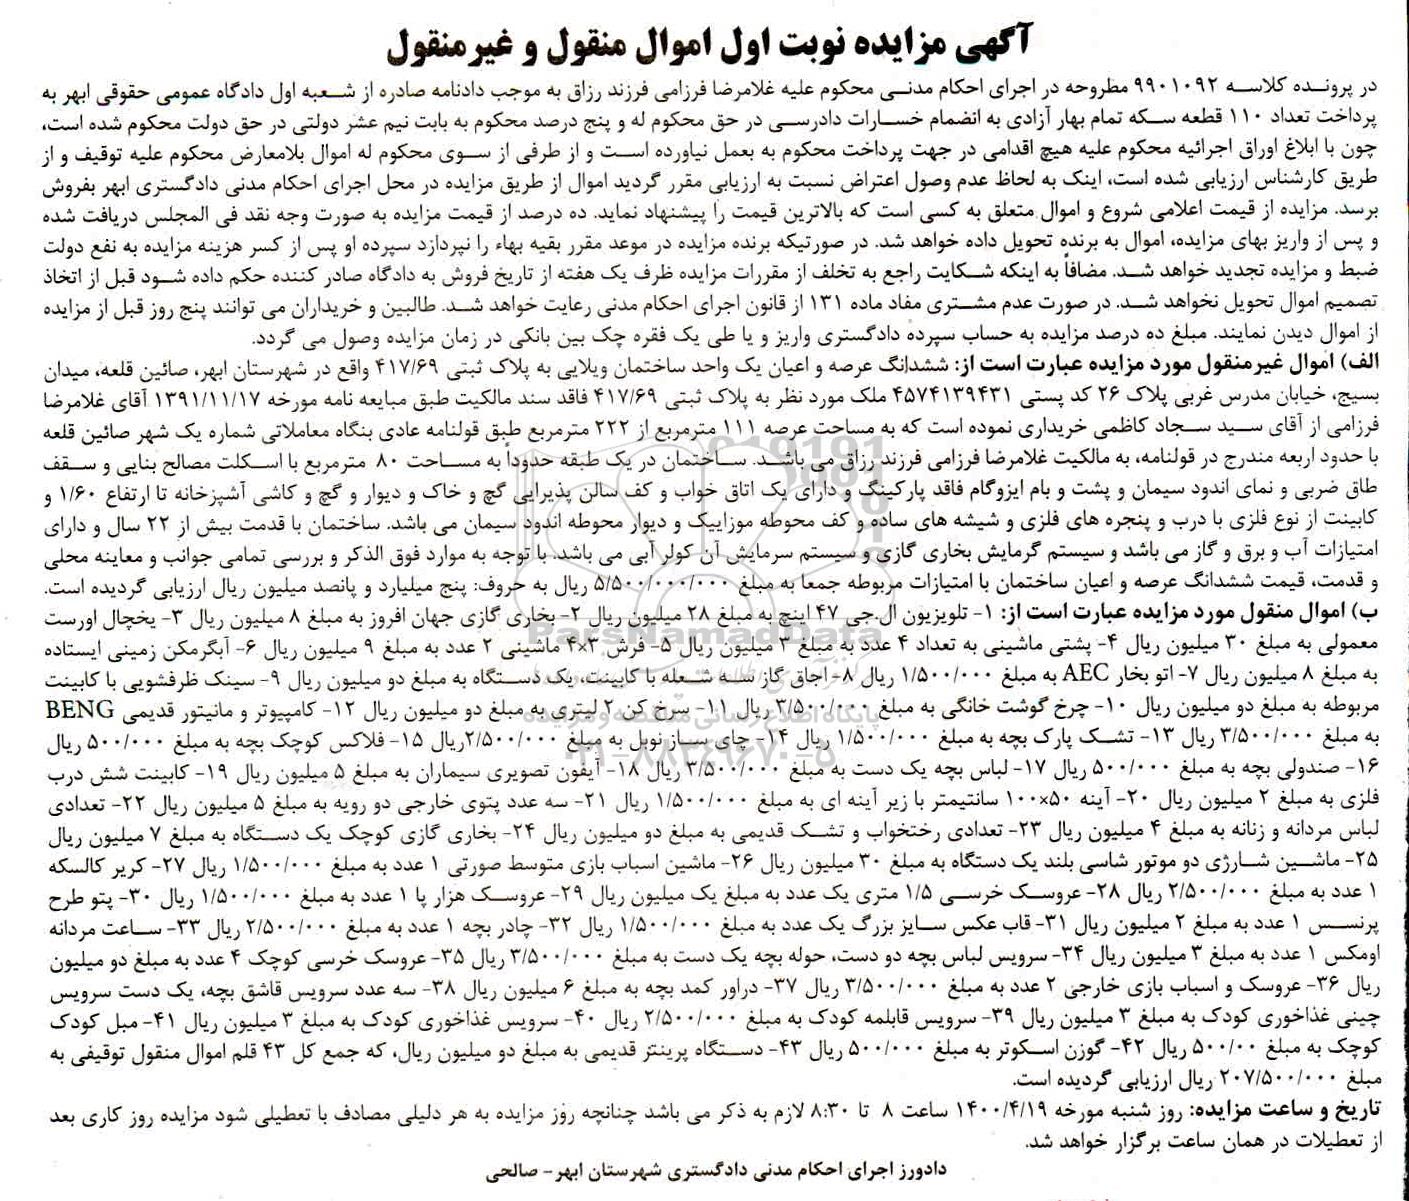 آگهی مزایده نوبت اول اموال منقول و غیرمنقول
در پرونده کلاسه ۹۹۰۱۰۹۲ مطروحه در اجرای احکام مدنی محکوم علیه غلامرضا فرزامی فرزند رزاق به موجب دادنامه صادره از شعبه اول دادگاه عمومی حقوقی ابهر به
پرداخت تعداد ۱۱۰ قطعه سکه تمام بهار آزادی به انضمام خسارات دادرسی در حق محکوم له و پنج درصد محکوم به بابت نیم عشر دولتی در حق دولت محکوم شده است،
چون با ابلاغ اوراق اجرائیه محکوم علیه هیچ اقدامی در جهت پرداخت محکوم به بعمل نیاورده است و از طرفی از سوی محکوم له اموال بلامعارض محکوم علیه توقیف و از
طریق کارشناس ارزیابی شده است، اینک به لحاظ عدم وصول اعتراض نسبت به ارزیابی مقرر گردید اموال از طریق مزایده در محل اجرای احکام مدنی دادگستری ابهر بفروش
برسد. مزایده از قیمت اعلامی شروع و اموال متعلق به کسی است که بالاترین قیمت را پیشنهاد نماید. ده درصد از قیمت مزایده به صورت وجه نقد فی المجلس دریافت شده
و پس از واریز بهای مزایده، اموال به برنده تحویل داده خواهد شد. در صورتیکه برنده مزایده در موعد مقرر بقیه بهاء را نپردازد سپرده او پس از کسر هزینه مزایده به نفع دولت
ضبط و مزایده تجدید خواهد شد. مضافاً به اینکه شکایت راجع به تخلف از مقررات مزایده ظرف یک هفته از تاریخ فروش به دادگاه صادر کننده حکم داده شود قبل از اتخاذ
تصمیم اموال تحویل نخواهد شد. در صورت عدم مشتری مفاد ماده ۱۳۱ از قانون اجرای احکام مدنی رعایت خواهد شد. طالبین و خریداران می توانند پنج روز قبل از مزایده
از اموال دیدن نمایند. مبلغ ده درصد مزایده به حساب سپرده دادگستری واریز و یا طی یک فقره چک بین بانکی در زمان مزایده وصول می گردد.
الف) اموال غیرمنقول مورد مزایده عبارت است از: ششدانگ عرصه و اعیان یک واحد ساختمان ویلایی به پلاک ثبتی ۴۱۷/۶۹ واقع در شهرستان ابهر، صائین قلعه، میدان
بسیج، خیابان مدرس غربی پلاک ۲۶ کد پستی ۴۵۷۴۱۳۹۴۳۱ ملک مورد نظر به پلاک ثبتی ۴۱۷/۶۹ فاقد سند مالکیت طبق مبایعه نامه مورخه ۱۳۹۱/۱۱/۱۷ آقای غلامرضا
فرزامی از آقای سید سجاد کاظمی خریداری نموده است که به مساحت عرصه ۱۱۱ مترمربع از ۲۲۲ مترمربع طبق قولنامه عادی بنگاه معاملاتی شماره یک شهر صائین قلعه
با حدود اربعه مندرج در قولنامه، به مالکیت غلامرضا فرزامی فرزند رزاق می باشد. ساختمان در یک طبقه حدوداً به مساحت ۸۰ مترمربع با اسکلت مصالح بنایی و سقف
طاق ضربی و نمای اندود سیمان و پشت و بام ایزوگام فاقد پارکینگ و دارای یک اتاق خواب و کف سالن پذیرایی گچ و خاک و دیوار و گچ و کاشی آشپزخانه تا ارتفاع ۱/۶۰ و
کابینت از نوع فلزی با درب و پنجره های فلزی و شیشه های ساده و کف محوطه موزاییک و دیوار محوطه اندود سیمان می باشد. ساختمان با قدمت بیش از ۲۲ سال و دارای
امتیازات آب و برق و گاز می باشد و سیستم گرمایش بخاری گازی و سیستم سرمایش آن کولر آبی می باشد. با توجه به موارد فوق الذکر و بررسی تمامی جوانب و معاینه محلی
و قدمت، قیمت ششدانگ عرصه و اعیان ساختمان با امتیازات مربوطه جمعا به مبلغ ۵/۵۰۰/۰۰۰/۰۰۰ ریال به حروف: پنج میلیارد و پانصد میلیون ریال ارزیابی گردیده است.
ب) اموال منقول مورد مزایده عبارت است از: ۱- تلویزیون ال.جی ۴۷ اینچ به مبلغ ۲۸ میلیون ریال ۲- بخاری گازی جهان افروز به مبلغ ۸ میلیون ریال ۳- یخچال اورست
معمولی به مبلغ ۳۰ میلیون ریال ۴- پشتی ماشینی به تعداد ۴ عدد به مبلغ ۲ میلیون ریال ۵- فرش ۳×۴ ماشینی ۲ عدد به مبلغ ۹ میلیون ریال ۶- آبگرمکن زمینی ایستاده
به مبلغ ۸ میلیون ریال ۷- اتو بخار AEC به مبلغ ۱/۵۰۰/۰۰۰ ریال ۸- اجاق گاز سه شعله با کابینت، یک دستگاه به مبلغ دو میلیون ریال ۹- سینک ظرفشویی با کابینت
مربوطه به مبلغ دو میلیون ریال ۱۰- چرخ گوشت خانگی به مبلغ ۳/۵۰۰/۰۰۰ ریال ۱۱- سرخ کن ۲ لیتری به مبلغ دو میلیون ریال ۱۲- کامپیوتر و مانیتور قدیمی BENG
به مبلغ ۳/۵۰۰/۰۰۰ ریال ۱۳- تشک پارک بچه به مبلغ ۱/۵۰۰/۰۰۰ ریال ۱۴- چای ساز نوبل به مبلغ ۲/۵۰۰/۰۰۰ریال ۱۵- فلاکس کوچک بچه به مبلغ ۵۰۰/۰۰۰ ریال
۱۶- صندولی بچه به مبلغ ۵۰۰/۰۰۰ ریال ۱۷- لباس بچه یک دست به مبلغ ۳/۵۰۰/۰۰۰ ریال ۱۸- آیفون تصویری سیماران به مبلغ ۵ میلیون ریال ۱۹- کابینت شش درب
فلزی به مبلغ ۲ میلیون ریال ۲۰- آینه ۵۰×۱۰۰ سانتیمتر با زیر آینه ای به مبلغ ۱/۵۰۰/۰۰۰ ریال ۲۱- سه عدد پتوی خارجی دو رویه به مبلغ ۵ میلیون ریال ۲۲- تعدادی
لباس مردانه و زنانه به مبلغ ۴ میلیون ریال ۲۳- تعدادی رختخواب و تشک قدیمی به مبلغ دو میلیون ریال ۲۴- بخاری گازی کوچک یک دستگاه به مبلغ ۷ میلیون ریال
۲۵- ماشین شارژی دو موتور شاسی بلند یک دستگاه به مبلغ ۳۰ میلیون ریال ۲۶- ماشین اسباب بازی متوسط صورتی ۱ عدد به مبلغ ۱/۵۰۰/۰۰۰ ریال ۲۷- کریر کالسکه
۱ عدد به مبلغ ۲/۵۰۰/۰۰۰ ریال ۲۸- عروسک خرسی ۱/۵ متری یک عدد به مبلغ یک میلیون ریال ۲۹- عروسک هزار پا ۱ عدد به مبلغ ۱/۵۰۰/۰۰۰ ریال ۳۰- پتو طرح
پرنسس ۱ عدد به مبلغ ۲ میلیون ریال ۳۱- قاب عکس سایز بزرگ یک عدد به مبلغ ۱/۵۰۰/۰۰۰ ریال ۳۲- چادر بچه ۱ عدد به مبلغ ۲/۵۰۰/۰۰۰ ریال ۳۳- ساعت مردانه
اومکس ۱ عدد به مبلغ ۳ میلیون ریال ۳۴- سرویس لباس بچه دو دست، حوله بچه یک دست به مبلغ ۳/۵۰۰/۰۰۰ ریال ۳۵- عروسک خرسی کوچک ۴ عدد به مبلغ دو میلیون
ریال ۳۶- عروسک و اسباب بازی خارجی ۲ عدد به مبلغ ۳/۵۰۰/۰۰۰ ریال ۳۷- دراور کمد بچه به مبلغ ۶ میلیون ریال ۳۸- سه عدد سرویس قاشق بچه، یک دست سرویس
چینی غذاخوری کودک به مبلغ ۳ میلیون ریال ۳۹- سرویس قابلمه کودک به مبلغ ۲/۵۰۰/۰۰۰ ریال ۴۰- سرویس غذاخوری کودک به مبلغ ۳ میلیون ریال ۴۱- مبل کودک
کوچک به مبلغ ۵۰۰/۰۰ ریال ۴۲- گوزن اسکوتر به مبلغ ۵۰۰/۰۰۰ ریال ۴۳- دستگاه پرینتر قدیمی به مبلغ دو میلیون ریال، که جمع کل ۴۳ قلم اموال منقول توقیفی به
مبلغ ۲۰۷/۵۰۰/۰۰۰ ریال ارزیابی گردیده است.
تاریخ و ساعت مزایده: روز شنبه مورخه ۱۴۰۰/۴/۱۹ ساعت ۸ تا ۸:۳۰ لازم به ذکر می باشد چنانچه روز مزایده به هر دلیلی مصادف با تعطیلی شود مزایده روز کاری بعد
از تعطیلات در همان ساعت برگزار خواهد شد.
دادورز اجرای احکام مدنی دادگستری شهرستان ابهر- صالحی
ParsNamadData
پایگاه اطلاع رسانی مناقصه و مزایده
۰۲۱-۸۸۳۴۹۶۷۰-۵